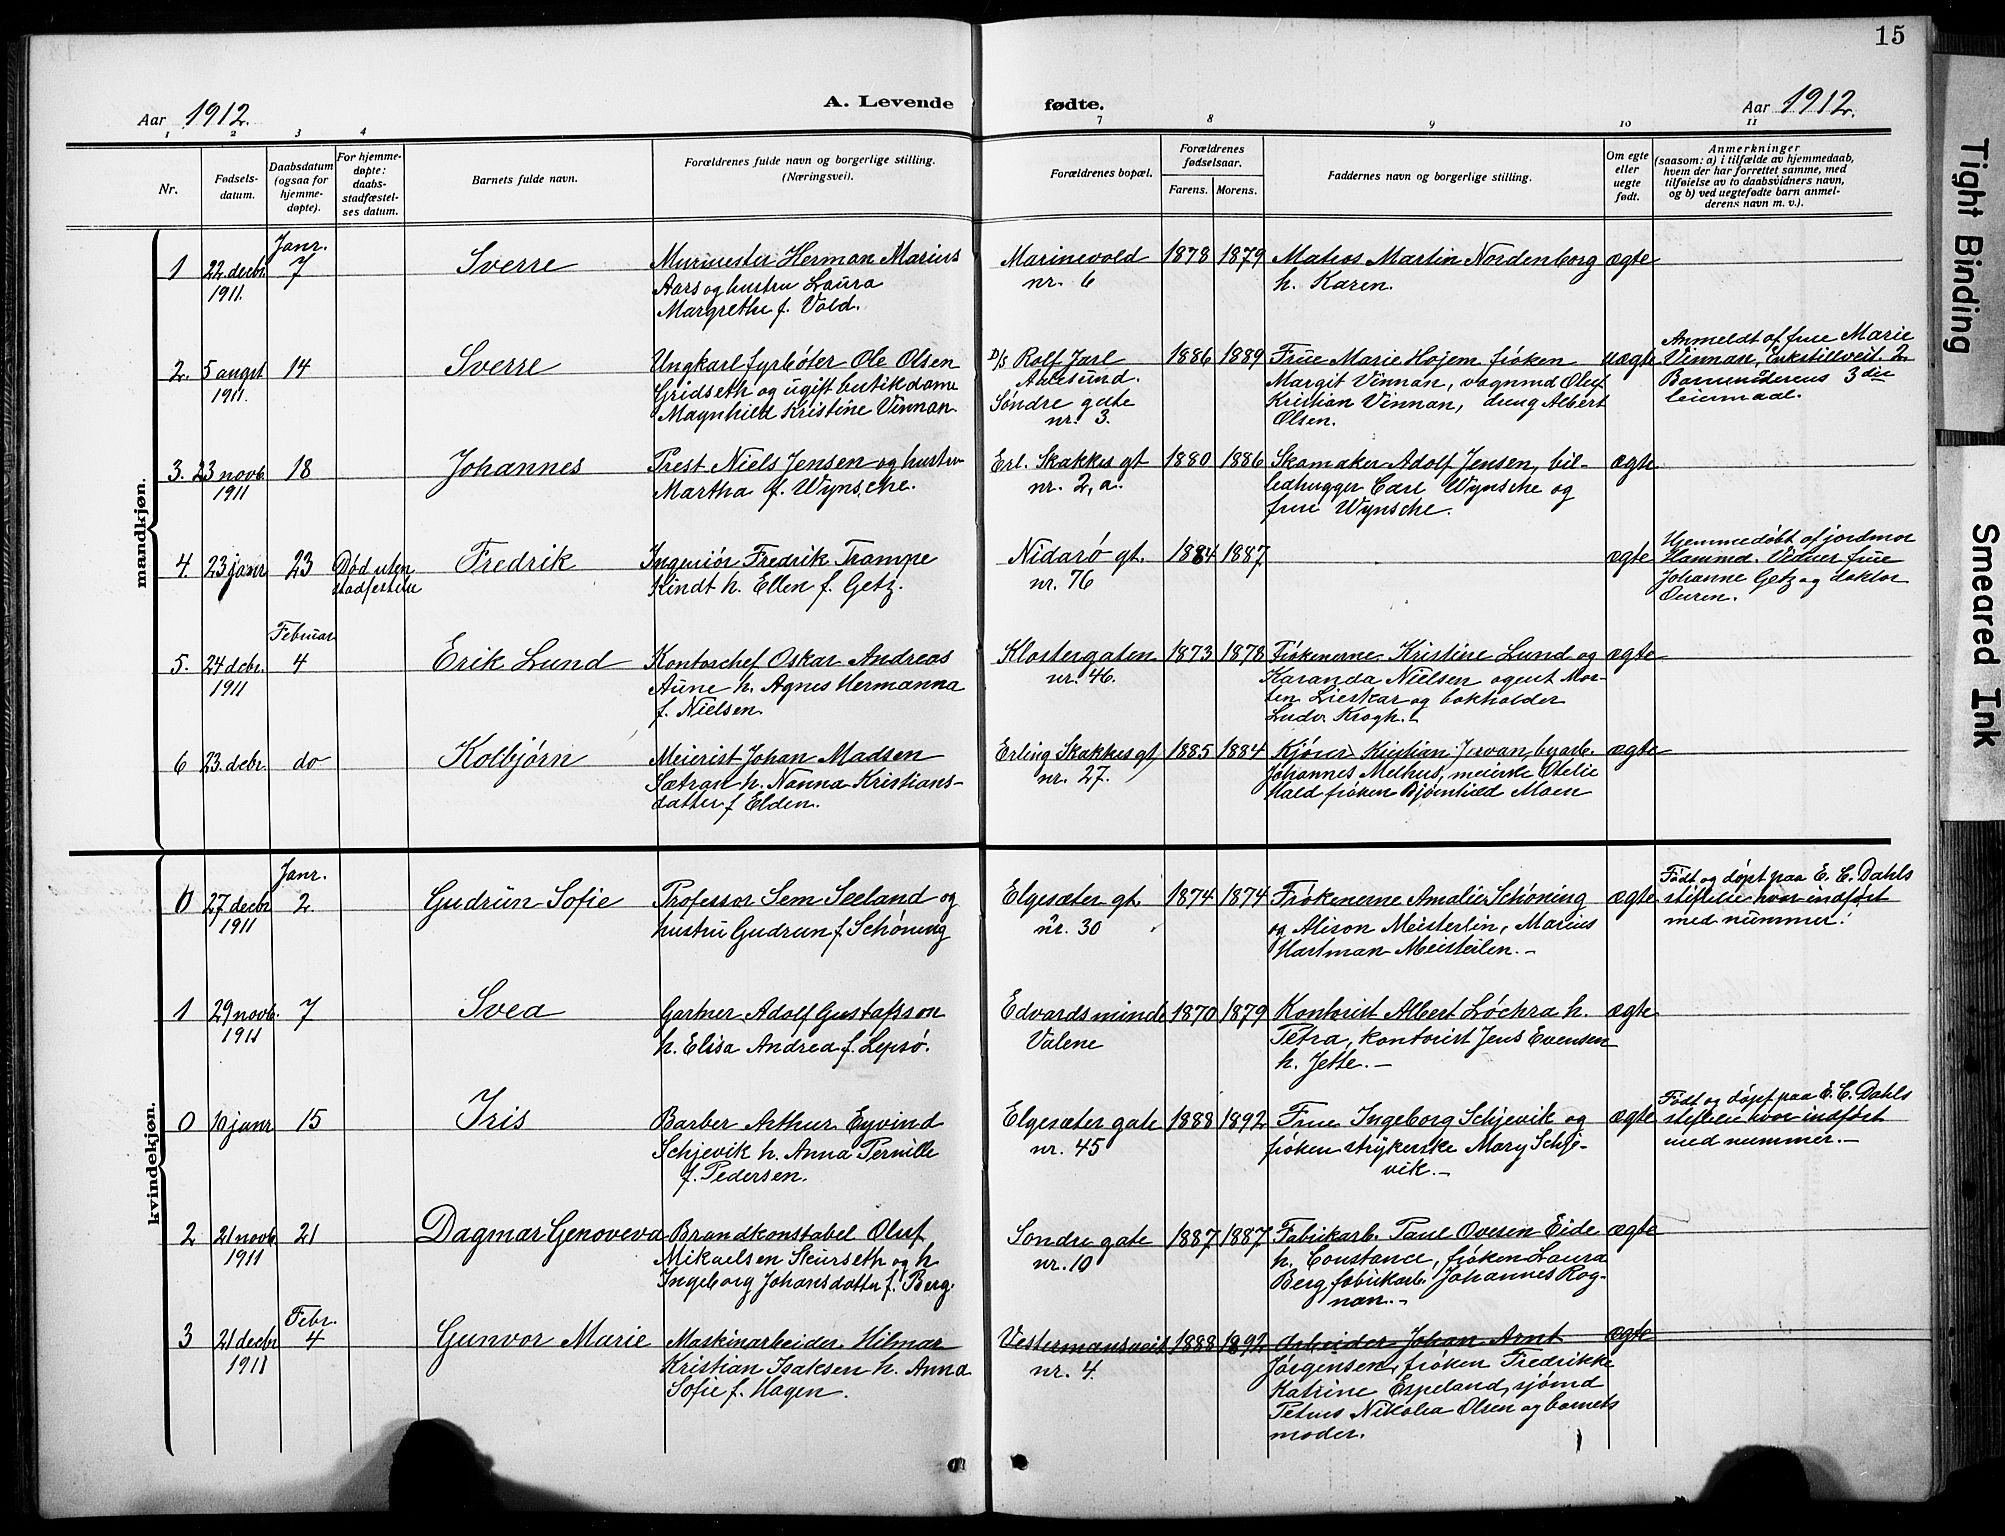 15
Aar 1912.
A. Levende fødte.
Aar 1912.
1 2 3 4 7 8 9 10 11
Nr.
Fødsels-
datum.
Daabsdatum
(ogsaa for
hjemme-
døpte).
For hjemme-
døpte:
daabs-
stadfæstel-
ses datum.
Barnets fulde navn.
Forældrenes fulde navn og borgerlige stilling.
(Næringsvei).
Forældrenes bopæl.
Forældrenes
fødselsaar.
Farens. Morens.
Faddernes navn og borgerlige stilling.
Om egte
eller
uegte
født.
Anmerkninger
(saasom: a) i tilfælde av hjemmedaab,
hvem der har forrettet samme, med
tilføielse av to daabsvidners navn,
og b) ved uegtefødte barn anmel-
derens navn m. v.).
mandkjøn.
Janr.
1 22 decbr 7 Sverre Murmester Herman Marius Marinevold 1878 1879 Matros Martin Nordenborg ægte
1911. Aars og hustru Laura nr. 6 h. Karen.
Margrethe f. Vold.
Anmeldt af frue Marie
2. 5 augst 14 Sverre Ungkarl fyrbøter Ole Olsen D/S Rolf Jarl 1886 1889 Frue Marie Hojem frøken uægte Vinnan, Enkstillveit 2
1911. Gridseth og ugift butikdame Aalesund. Margit Vinnan, vognmd Oluf Barnemoderens 3die
Magnhild Kristine Vinnan Søndre gate Kristian Vinnan, dreng Albert leiermaal.
nr. 3. Olsen.
3. 23 novb. 18 Johannes Prest Niels Jensen og hustru Erl. Skakkes gt 1880 1886 Skomaker Adolf Jensen, bil- ægte
1911 Martha f. Wynsche. nr. 2, a. ledhugger Carl Wynsche og
frue Wynsche.
Hjemmedøbt af jordmor
4. 23 janr 23 Død uten Fredrik Ingeniør Fredrik Trampe Nidarø gt. 1884 1887 ægte Hammed. Vidner frue
stadfestelse Kindt h. Ellen f. Getz. nr. 76 Johanne Getz og doktor
Februar
5. 24 debr. 4 Erik Lund Kontorchef Oskar Andreas Klostergaten 1873 1878 Frøkenerne Kristine Lund og ægte
1911 Aune h. Agnes Hermanna nr. 46. Karanda Nielsen agent Mor-
f. Nielsen. ten Lierskar og bokholder
Ludv. Krogh.
6 23. debr. do Kolbjørn Meierist Johan Madsen Erling Skakkes gt 1885 1884 Kristian byarb. ægte
Sætran h. Nanna Kristians- nr. 27. Johannes Melhus, meierske Otelie
datter f Elden. Hald frøken Moen
kvindekjøn.
Janr.
Født og døpt paa E. C. Dahls
0 27 decbr 2. Gudrun Sofie Professor Sem Sæland og Elgesæter gt. 1874 1874 Frøkenerne Amalie Schöning ægte stiftelse hvor indført
1911 hustru Gudrun f. Schöning nr. 30 og Alison Meisterlin, Marius med nummer.
Hartman Meisterlin.-
1 29 novb. 7 Svea Gartner Adolf Gustafsson Edvardsminde 1870 1879 Kontorist Albert Løchra h. ægte
1911 h. Elisa Andrea f. Lepsø. Valene Petra, kontorist Jens Evensen
h. Jette.-
Født og døpt paa E. C. Dahls
0 10 janr 15 Iris Barber Arthur Eyvind Elgesæter gate 1888 1892 Frue Ingeborg Schjevik og ægte stiftelse hvor indført
Schjevik h. Anna Pernille nr. 45 frøken strykerske Mary Schje- med nummer.-
f. Pedersen. vik.-
2 21 novb. 21 Dagmar Genoveva Brandkonstabel Oluf Søndre gate 1887 1887 Fabrikarb. Paul Ovesen Eide ægte
1911 Mikaelsen Skurseth og h nr. 10 h. Constance, frøken Laura
Ingeborg Johansdatter f. Berg. Berg fabrikarb. Johannes Rog-
nan.-
Febr.
3 21 decbr 4 Gunvor Marie Maskinarbeider Hilmar Vestermansveit 1888 1892 Arbeider Johan Arnt ægte
1911 Kristian Isaksen h. Anna nr. 4. Jørgensen, frøken Fredrikke
Sofie f. Hagen. Katrine Espeland, sjømd
Petrus Nikolia Olsen og barnets
moder.
Tight Binding
Smeared Ink